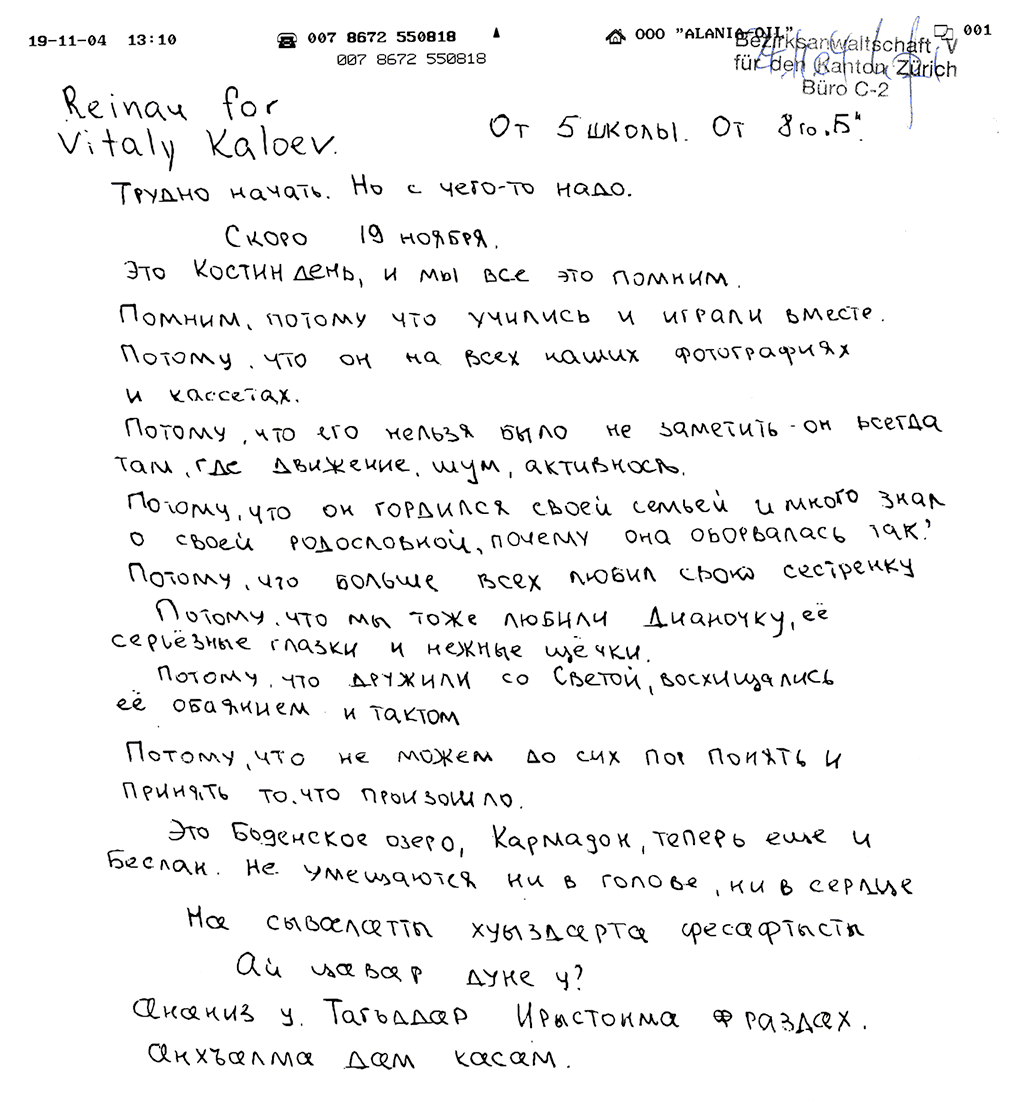 19-11-04 13:10 ☎ 007 8672 550818 ООО "ALANIA-OIL" 001
007 8672 550818
Bezirksanwaltschaft V
für den Kanton Zürich
Büro C-2
Reinau for
Vitaly Kaloev.
От 5 школы. От 8го „Б“.
Трудно начать. Но с чего-то надо.
Скоро 19 ноября.
Это Костин день, и мы все это помним.
Помним, потому что учились и играли вместе.
Потому, что он на всех наших фотографиях
и кассетах.
Потому, что его нельзя было не заметить - он всегда
там, где движение, шум, активность.
Потому, что он гордился своей семьей и много знал
о своей родословной, почему она оборвалась так?
Потому, что больше всех любил свою сестренку
Потому, что мы тоже любили Дианочку, её
серьёзные глазки и нежные щёчки.
Потому, что дружили со Светой, восхищались
её обаянием и тактом
Потому, что не можем до сих пор понять и
принять то, что произошло.
Это Боденское озеро, Кармадон, теперь еще и
Беслан. Не умещаются ни в голове, ни в сердце
Нæ сывæлæтты хуыздæртæ фесæфтысты
Ай цавæр дуне у?
Æнæниз у. Тагъддæр Ирыстонмæ фæраздæх.
Æнхъæлмæ дæм кæсæм.